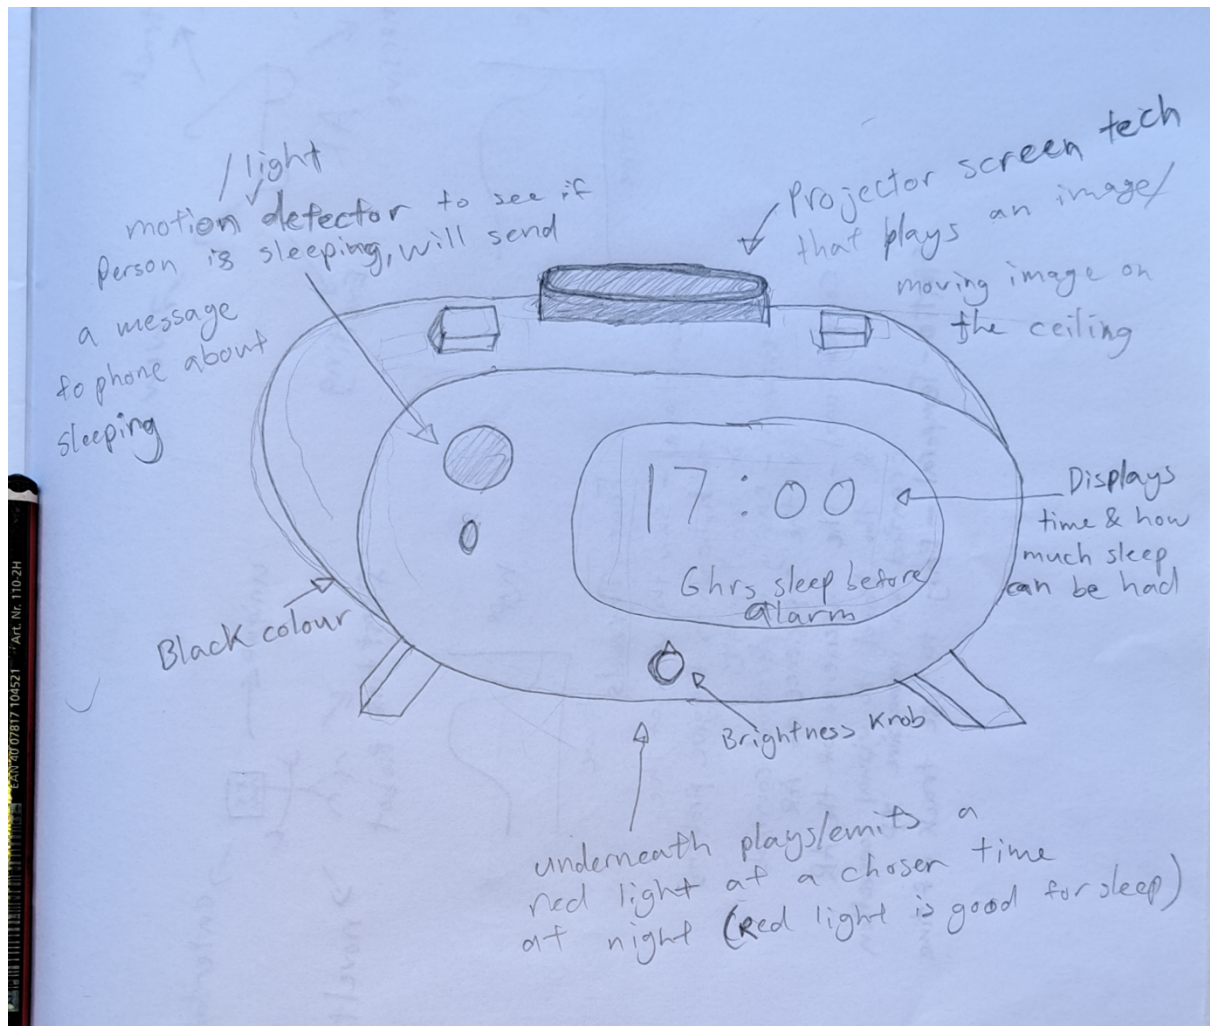 /light
motion detector to see if
person is sleeping, will send
a message
to phone about
sleeping
Projector screen tech
that plays an image/
moving image on
the ceiling
17:00
6hrs sleep before
alarm
Displays
time & how
much sleep
can be had
Black colour
Brightness Knob
underneath plays/emits a
red light at a chosen time
at night (Red light is good for sleep)
EAN 40 07817 104521 Art. Nr. 110-2H